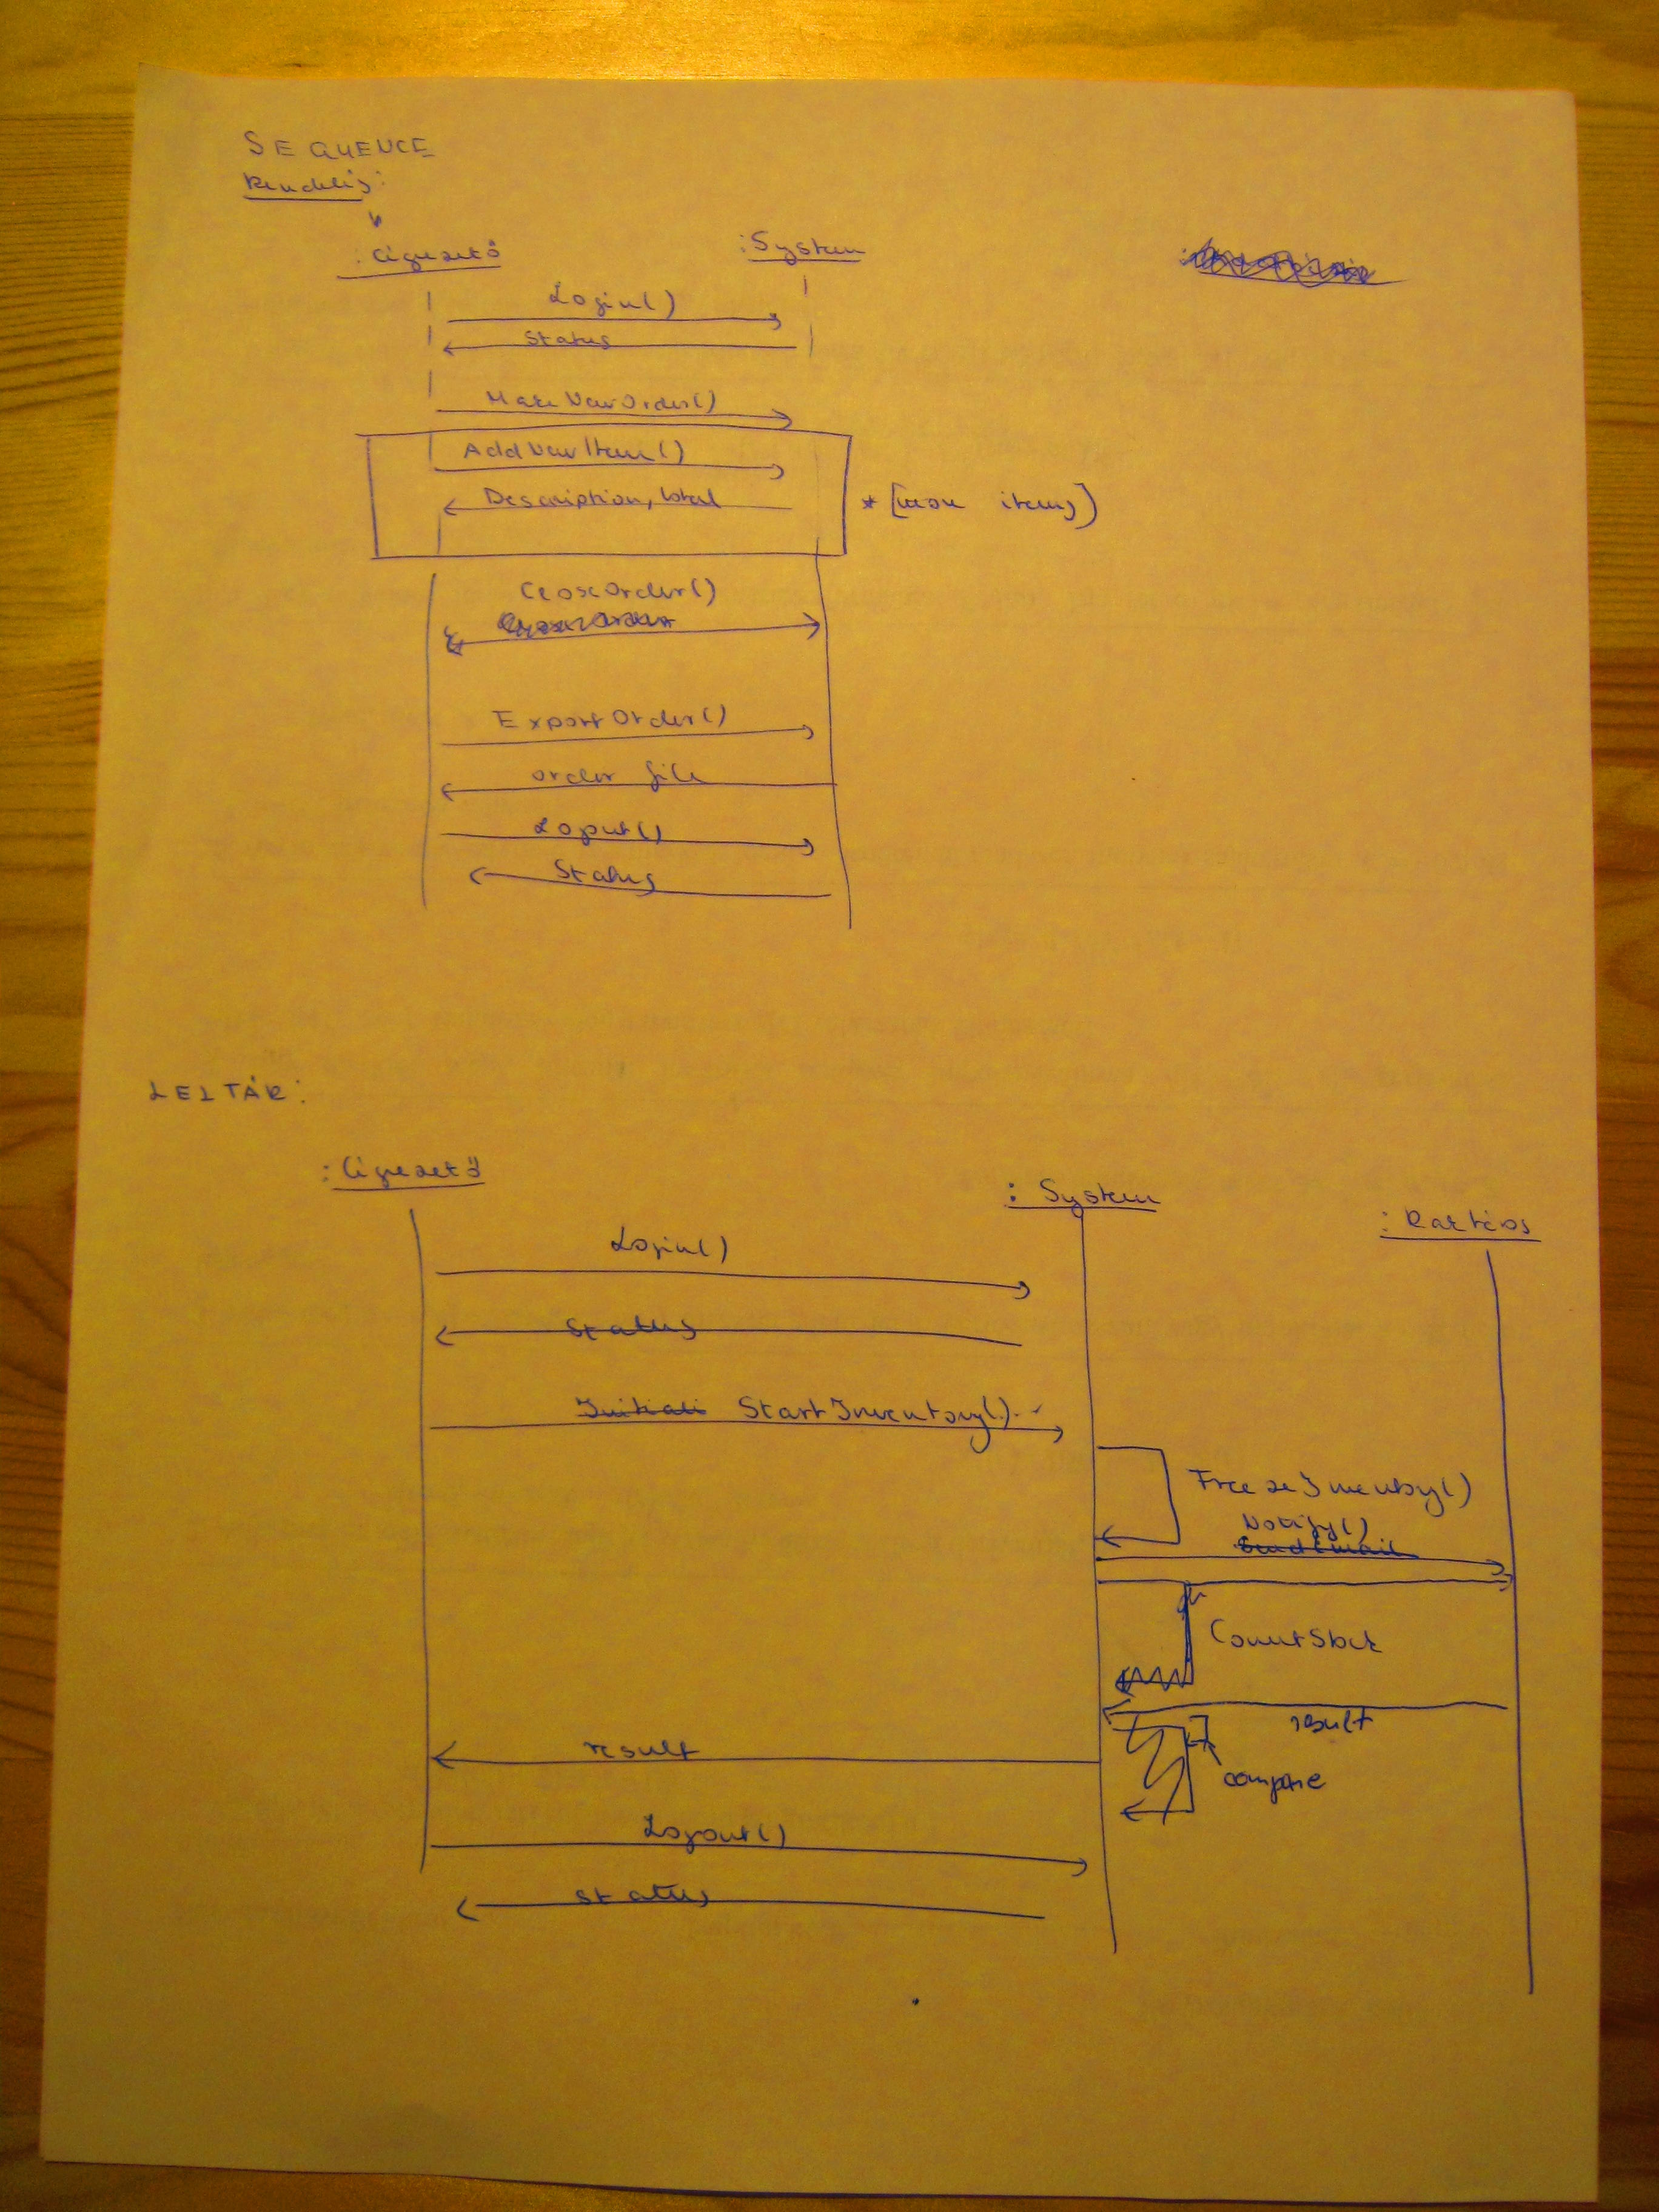 SEQUENCE
Rendelés:
:Cégvezető :System
Login()
Status
MakeNewOrder()
AddNewItem()
Description, total
* [more items]
CloseOrder()
ExportOrder()
order file
Logout()
Status
LELTÁR:
:Cégvezető
: System
: Raktáros
Login()
Status
Initiali StartInventory()
FreezeInventory()
Notify()
SendEmail
CountStock
result
result
compare
Logout()
status